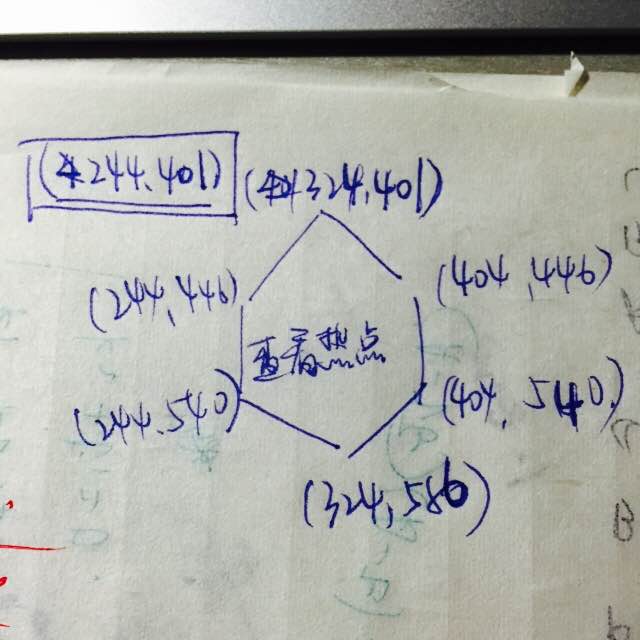 (244,401) (324,401)
(244,446) (404,446)
查看热点
(244,540) (404,540)
(324,586)